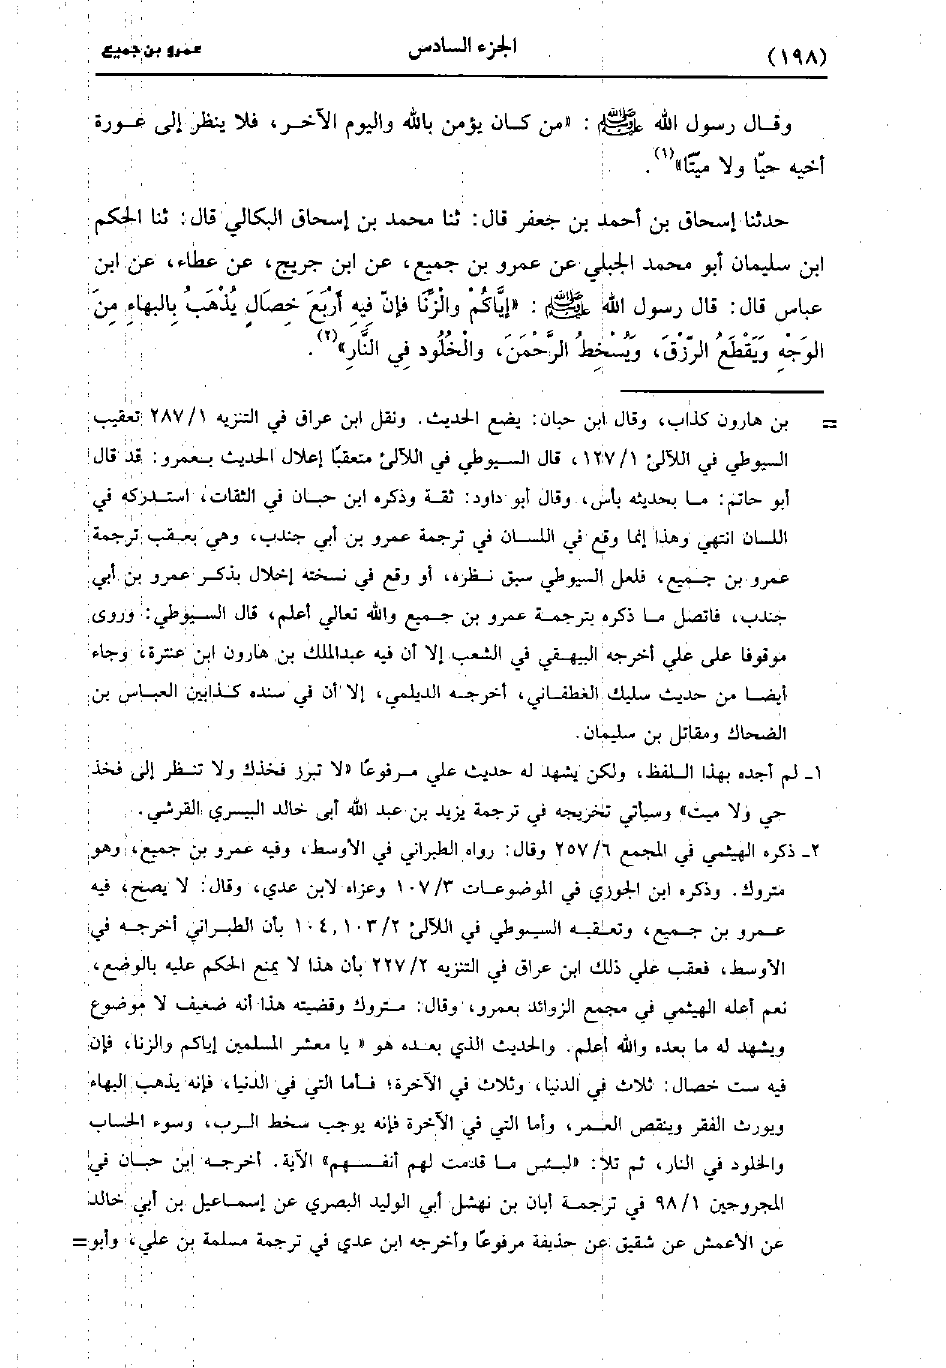 (١٩٨) الجزء السادس عمرو بن جميع
وقال رسول الله ﷺ : «من كان يؤمن بالله واليوم الآخر، فلا ينظر إلى عورة
أخيه حيّا ولا ميتّا»(١).
حدثنا إسحاق بن أحمد بن جعفر قال: ثنا محمد بن إسحاق البكالي قال: ثنا الحكم
ابن سليمان أبو محمد الجبلي عن عمرو بن جميع، عن ابن جريج، عن عطاء، عن ابن
عباس قال: قال رسول الله ﷺ : «إيَّاكُمْ والزِّنَا فإنّ فِيهِ أرْبَعَ خِصَالٍ يُذْهَبُ بِالبهاءِ مِنَ
الوَجْهِ وَيَقْطَعُ الرّزْقَ، وَيُسْخِطُ الرَّحْمَنَ، والْخُلُود فِي النَّارِ»(٢).
= بن هارون كذاب، وقال ابن حبان: يضع الحديث. ونقل ابن عراق في التنزيه ٢٨٧/١ تعقيب
السيوطي في اللآلئ ١٢٧/١، قال السيوطي في اللآلئ متعقبًا إعلال الحديث بعمرو: قد قال
أبو حاتم: ما بحديثه بأس، وقال أبو داود: ثقة وذكره ابن حبان في الثقات، استدركه في
اللسان انتهي وهذا إنما وقع في اللسان في ترجمة عمرو بن أبي جندب، وهي بعقب ترجمة
عمرو بن جميع، فلعل السيوطي سبق نظره، أو وقع في نسخته إخلال بذكر عمرو بن أبي
جندب، فاتصل ما ذكره بترجمة عمرو بن جميع والله تعالي أعلم، قال السيوطي: وروى
موقوفا على علي أخرجه البيهقي في الشعب إلا أن فيه عبدالملك بن هارون ابن عنترة، وجاء
أيضا من حديث سليك الغطفاني، أخرجه الديلمي، إلا أن في سنده كذابين العباس بن
الضحاك ومقاتل بن سليمان.
١- لم أجده بهذا اللفظ، ولكن يشهد له حديث علي مرفوعًا «لا تبرز فخذك ولا تنظر إلى فخذ
حي ولا ميت» وسيأتي تخريجه في ترجمة يزيد بن عبد الله أبى خالد البيسري القرشي.
٢- ذكره الهيثمي في المجمع ٢٥٧/٦ وقال: رواه الطبراني في الأوسط، وفيه عمرو بن جميع، وهو
متروك. وذكره ابن الجوزي في الموضوعات ١٠٧/٣ وعزاه لابن عدي، وقال: لا يصح، فيه
عمرو بن جميع، وتعقبه السيوطي في اللآلئ ١٠٣/٢، ١٠٤ بأن الطبراني أخرجه في
الأوسط، فعقب علي ذلك ابن عراق في التنزيه ٢٢٧/٢ بأن هذا لا يمنع الحكم عليه بالوضع،
نعم أعله الهيثمي في مجمع الزوائد بعمرو، وقال: متروك وقضيته هذا أنه ضعيف لا موضوع
ويشهد له ما بعده والله أعلم. والحديث الذي بعده هو « يا معشر المسلمين إياكم والزنا، فإن
فيه ست خصال: ثلاث في الدنيا، وثلاث في الآخرة؛ فأما التي في الدنيا، فإنه يذهب البهاء
ويورث الفقر وينقص العمر، وأما التي في الآخرة فإنه يوجب سخط الرب، وسوء الحساب
والخلود في النار، ثم تلا: «لبئس ما قدمت لهم أنفسهم» الآية. أخرجه ابن حبان في
المجروحين ٩٨/١ في ترجمة أبان بن نهشل أبي الوليد البصري عن إسماعيل بن أبي خالد
عن الأعمش عن شقيق عن حذيفة مرفوعًا وأخرجه ابن عدي في ترجمة مسلمة بن علي، وأبو =